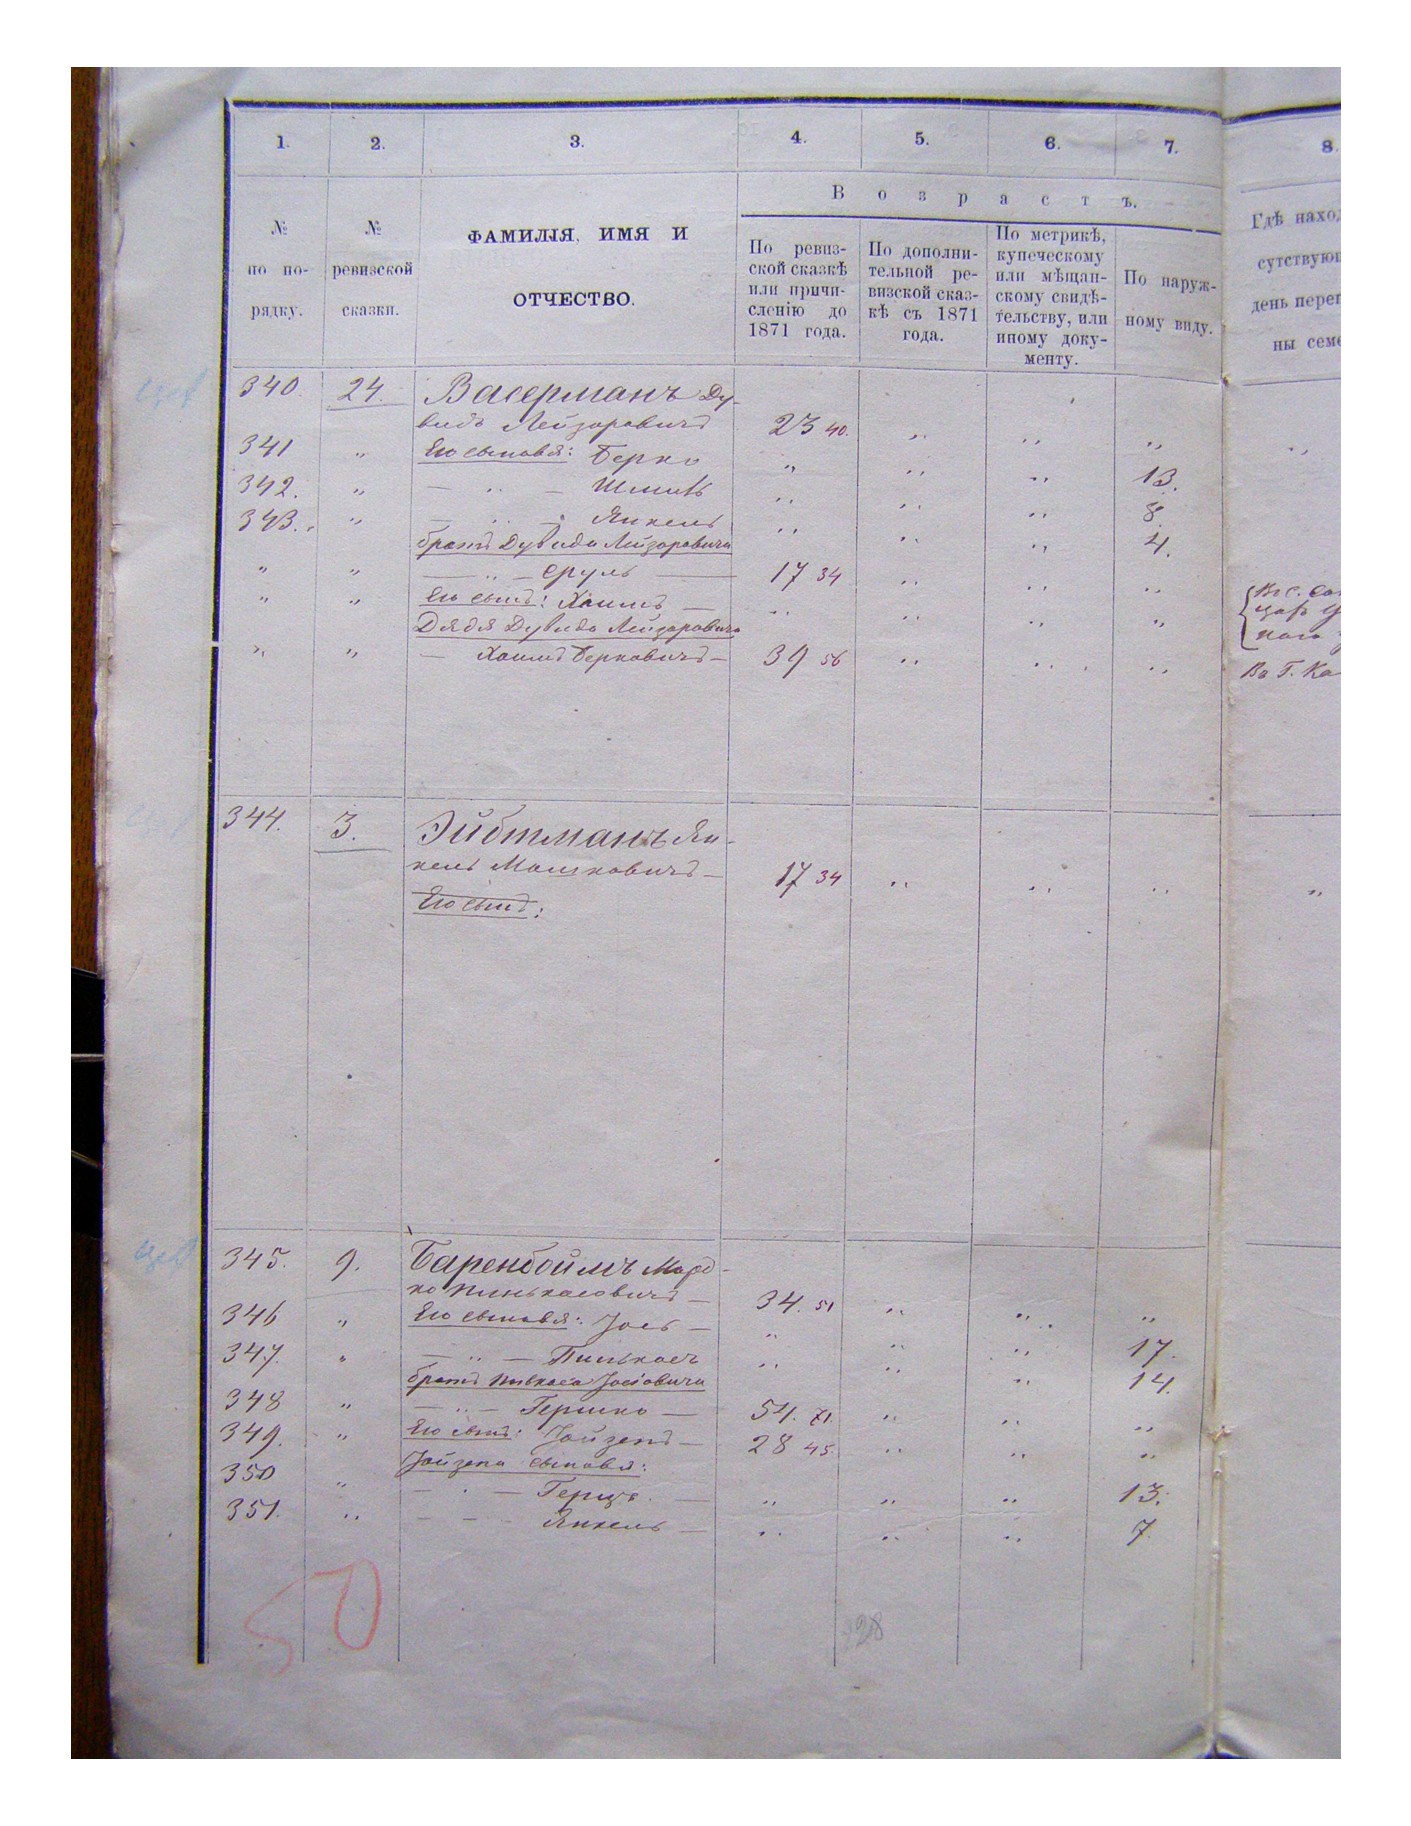 1. 2. 3. 4. 5. 6. 7. 8.
№ по порядку.
№ ревизской сказки.
ФАМИЛІЯ, ИМЯ И
ОТЧЕСТВО.
Возрастъ.
По ревиз-
ской сказкѣ
или причи-
сленію до
1871 года.
По дополни-
тельной ре-
визской сказ-
кѣ съ 1871
года.
По метрикѣ,
купеческому
или мѣщан-
скому свидѣ-
тельству, или
иному доку-
менту.
По наруж-
ному виду.
Гдѣ наход
сутствующ
день переп
ны семе
340. 24. Васерманъ Ду-
видъ Лейзоровичъ 23 40. " " "
341 " Его сыновья: Берко " " " 13.
342. " — " — Шмиль " " " 8.
343. " — " — Янкель " " " 4.
братъ Дувида Лейзоровича
" " — " — Сруль — 17 34 " " "
" " Его сынъ: Хаимъ — " " " "
Дядя Дувида Лейзоровича
" " — Хаимъ Берковичъ — 39 56 " " " Въ Г. Ка
344. 3. Эйбтманъ Ян-
кель Мошковичъ — 17 34 " " " "
Его сынъ:
345. 9. Баренбоймъ Морд-
ко Пинькасовичъ — 34. 51 " " "
346 " Его сыновья: Іось — " " " 17.
347. " — " — Пинькасъ " " " 14.
братъ Пинкаса Іосіовича
348 " — " — Гершко — 54. 71. " " "
349. " Его сынъ: Іойзепъ — 28 45 " " "
Іойзепа сыновья:
350 " — " — Герцъ — " " " 13.
351. " — — — Янкель — " " " 7.
50